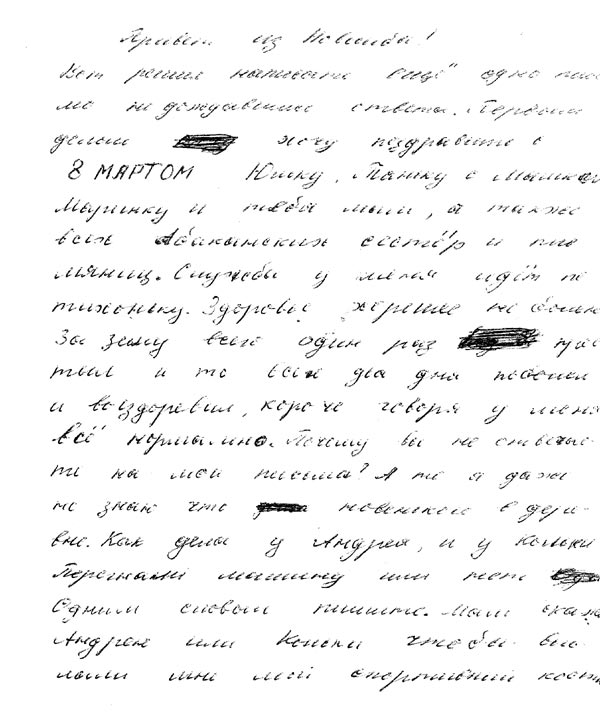 Привет из Новшиба!
Вот решил написать ещё одно пись
мо не дождавшись ответа. Первым
делом хочу поздравить с
8 МАРТОМ Юльку, Таньку с Мамкой
Маринку и тебя мам, а также
всех Абаканских сестёр и пле
мянниц. Служба у меня идёт по
тихоньку. Здоровье хорошее не болею
За зиму всего один раз прос
тыл и то всего два дня поболел
и выздоровел, короче говоря у меня
всё нормально. Почему вы не отвечае
ти на мои письма? А то я даже
не знаю что новенького в дере
вне. Как дела у Андрея, и у Кольки
Перегнали машину или нет
Одним словом пишите. Мам скажи
Андрею или Кольки чтобы выс
лали мне мой спортивный костюм